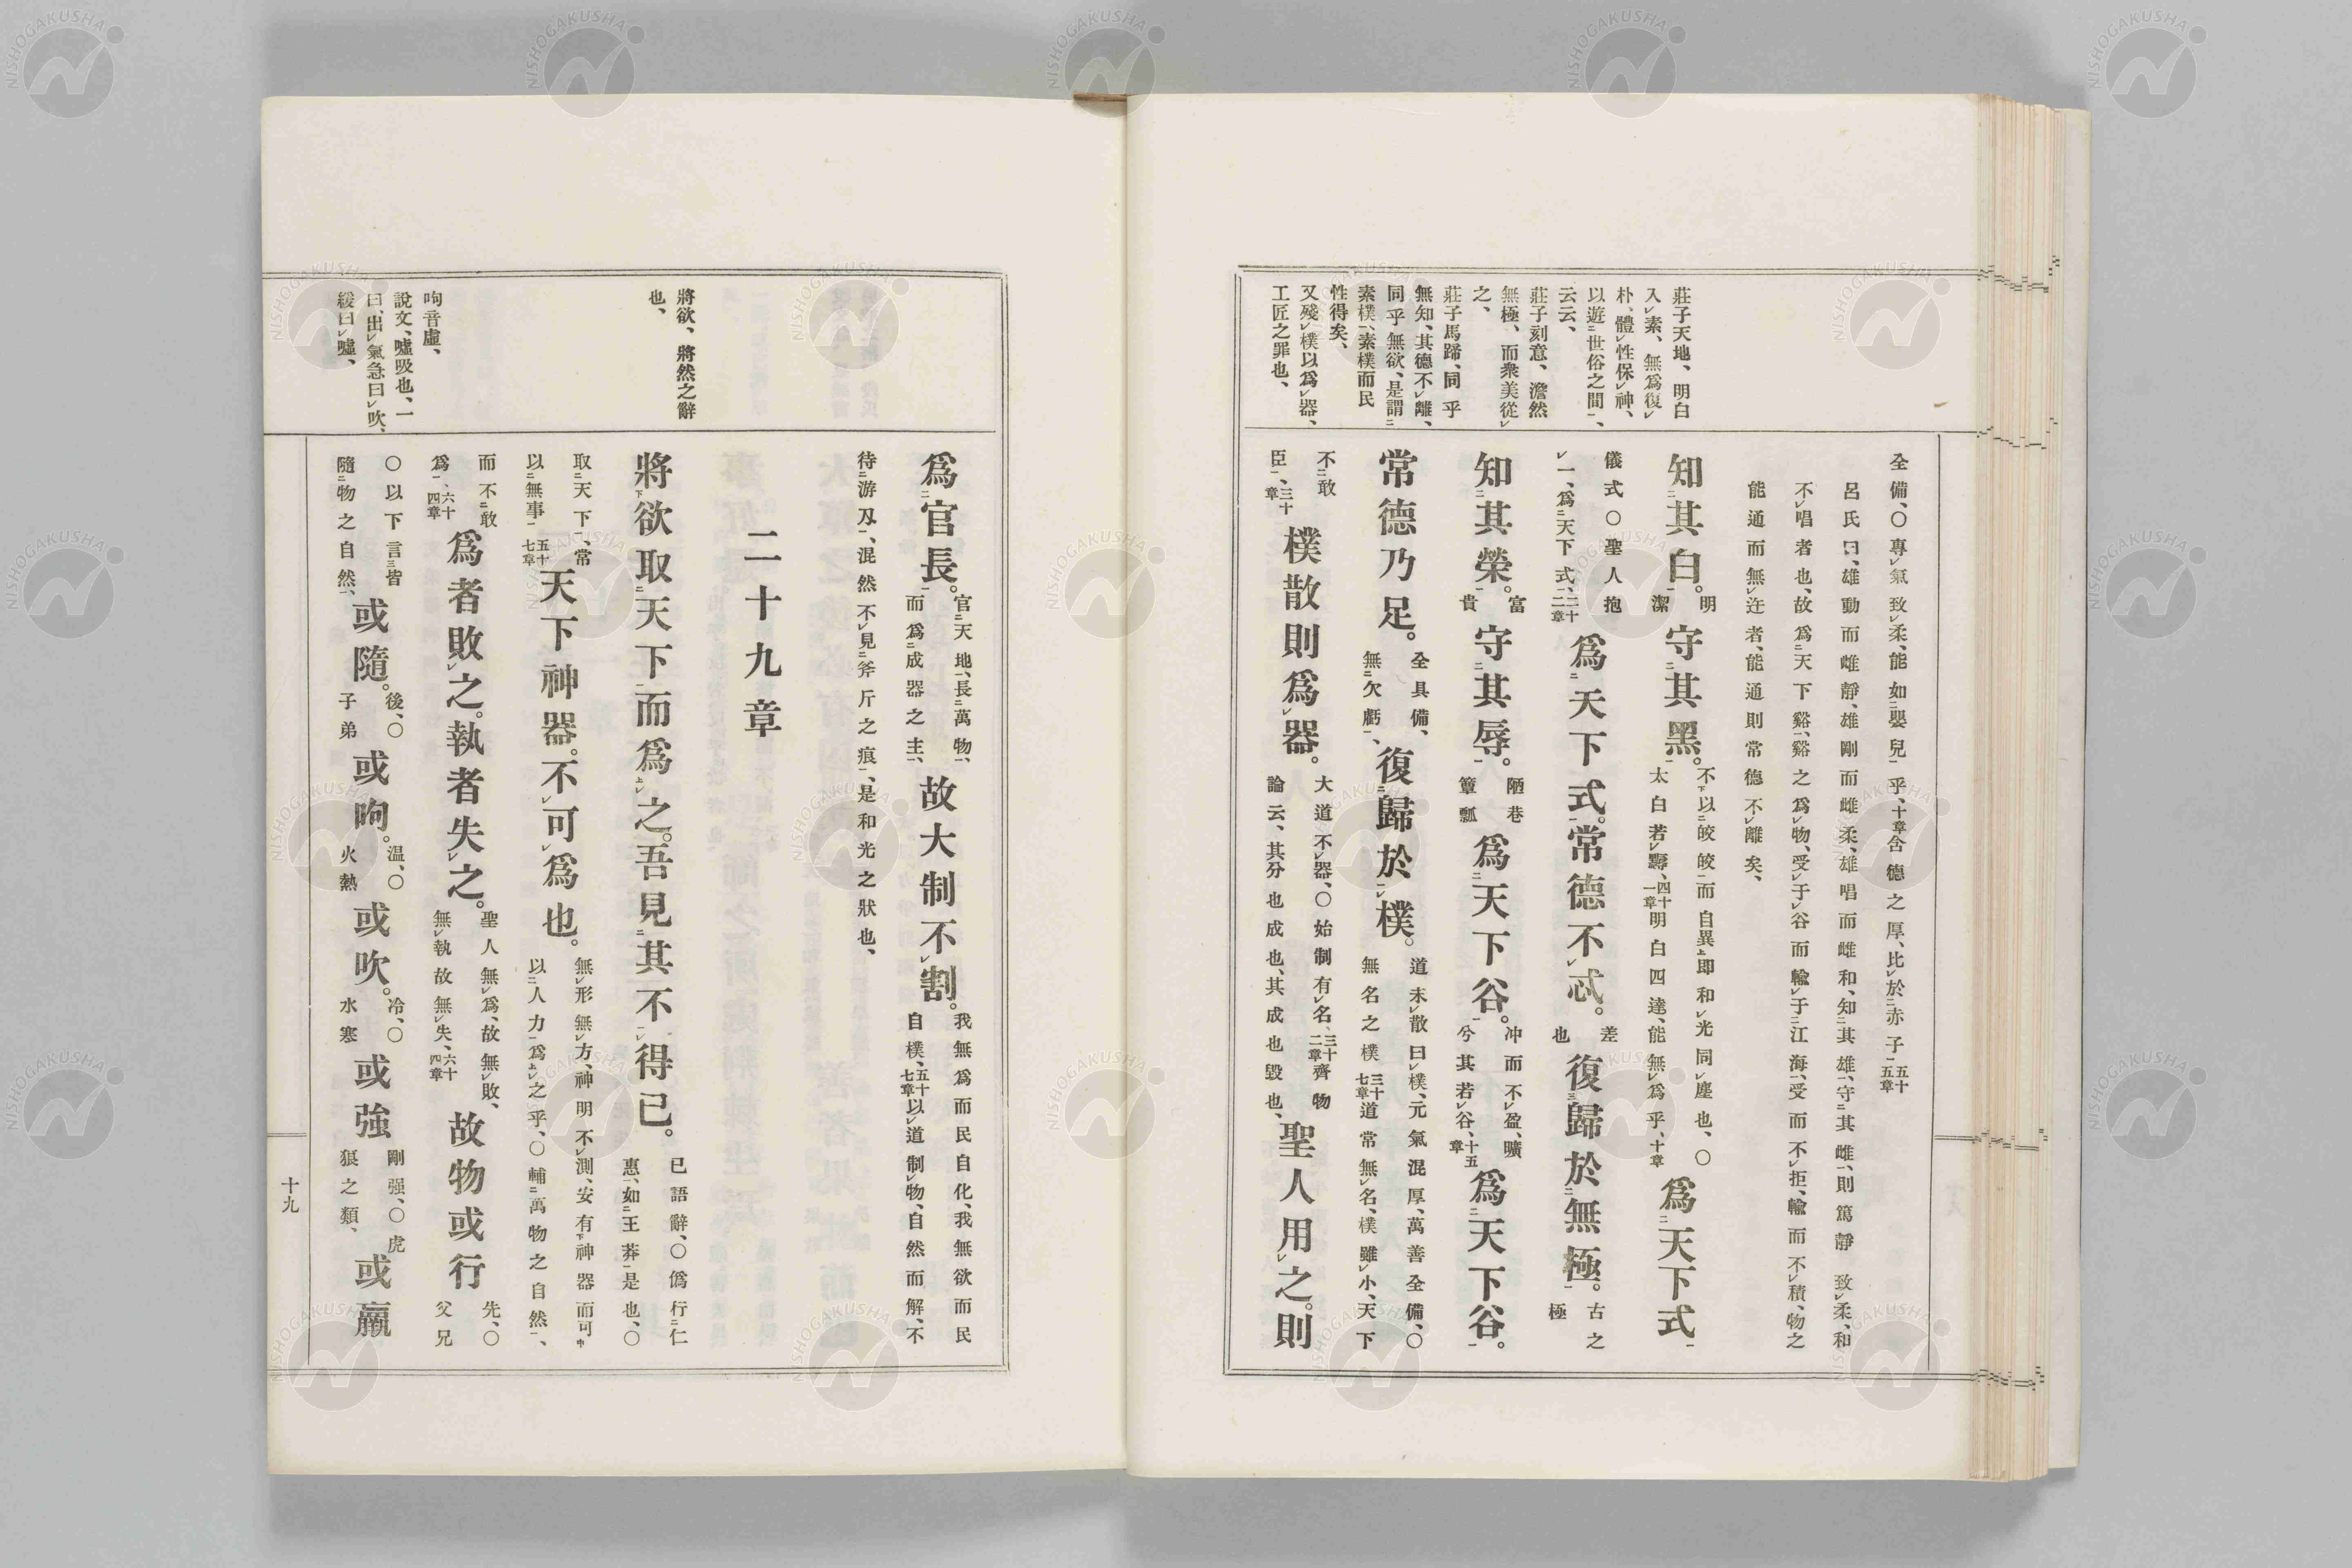 莊子天地、明白
入素、無爲復
朴、體性保神、
以遊世俗之間、
云云、
莊子刻意、澹然
無極、而衆美從
之、
莊子馬蹄、同乎
無知、其德不離、
同乎無欲、是謂
素樸、素樸而民
性得矣、
又殘樸以爲器、
工匠之罪也、
全備、〇專氣致柔、能如嬰兒乎、十章含德之厚、比於赤子五十五章
呂氏曰、雄動而雌靜、雄剛而雌柔、雄唱而雌和、知其雄、守其雌、則篤靜致柔、和
不唱者也、故爲天下谿、谿之爲物、受于谷而輸于江海、受而不拒、輸而不積、物之
能通而無迕者、能通則常德不離矣、
知其白。明潔守其黑。不以皎皎而自異、即和光同塵也、〇太白若辱、四十一章明白四達、能無爲乎、十章爲天下式
儀式〇聖人抱一、爲天下式、二十二章爲天下式。常德不忒。差也復歸於無極。古之極
知其榮。富貴守其辱。陋巷簞瓢爲天下谷。冲而不盈、曠兮其若谷、十五章爲天下谷。
常德乃足。全具備、無欠虧、復歸於樸。道未散曰樸、元氣混厚、萬善全備、〇無名之樸三十七章道常無名、樸雖小、天下
不敢臣、三十章樸散則爲器。大道不器、〇始制有名、三十二章齊物論云、其分也成也、其成也毀也、聖人用之。則
將欲、將然之辭
也、
呴音虛、
說文、噓吸也、一
曰、出氣急曰吹、
緩曰噓、
爲官長。官天地、長萬物、而爲成器之主、故大制不割。我無爲而民自化、我無欲而民自樸、五十七章以道制物、自然而解、不
待游刄、混然不見斧斤之痕、是和光之狀也、
二十九章
將欲取天下而爲之。吾見其不得已。已語辭、〇僞行仁惠、如王莽是也、〇
取天下、常以無事五十七章天下神器。不可爲也。無形無方、神明不測、安有神器而可以人力爲之乎、〇輔萬物之自然、
而不敢爲、六十四章爲者敗之。執者失之。聖人無爲、故無敗、無執故無失、六十四章故物或行先、〇父兄
〇以下言皆隨物之自然、或隨。後、〇子弟或呴。温、〇火熱或吹。冷、〇水寒或強剛强、〇虎狼之類、或羸
十九